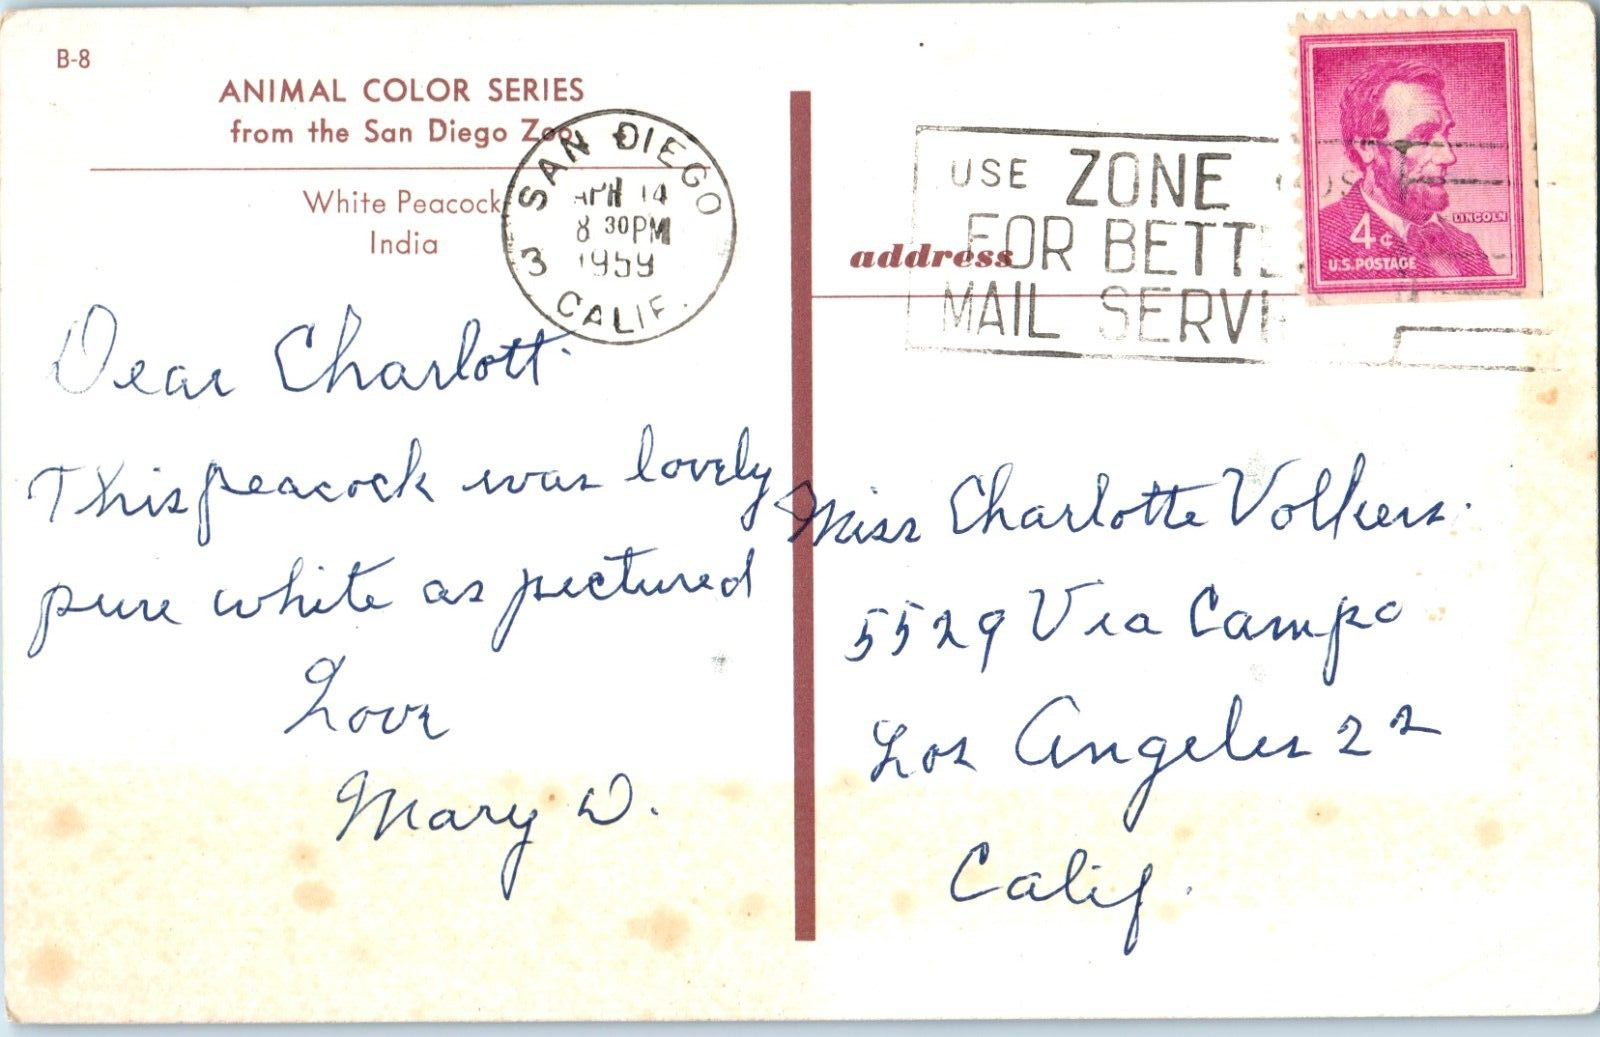 B-8
ANIMAL COLOR SERIES
from the San Diego Zoo
White Peacock
India
SAN DIEGO
APR 14
8 30PM
1959
3
CALIF.
Dear Charlott.
This peacock was lovely
pure white as pictured
Love
Mary D.
USE ZONE
FOR BETT
MAIL SERVI
address
LINCOLN
4¢
U.S. POSTAGE
Miss Charlotte Volkers.
5529 Via Campo
Los Angeles 22
Calif.